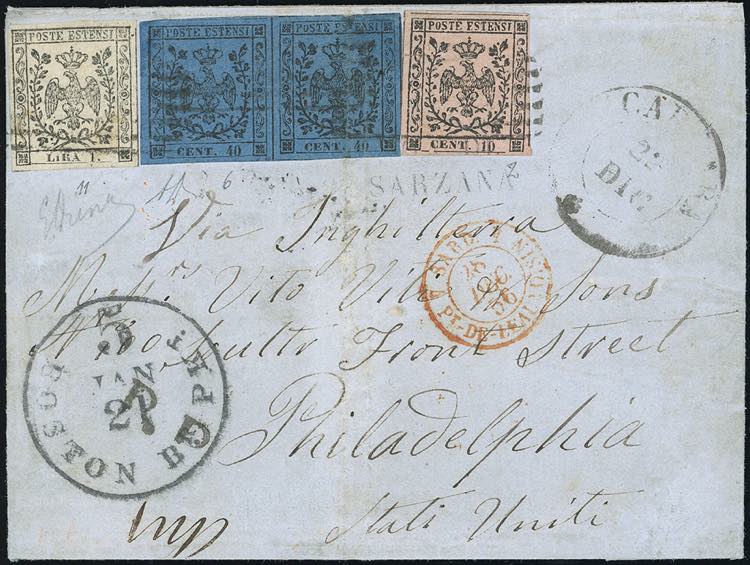 POSTE ESTENSI
LIRA 1.
POSTE ESTENSI
CENT. 40
POSTE ESTENSI
CENT. 40
POSTE ESTENSI
CENT. 10
SARZANA
22
DIC
11
6
Via Inghilterra
Mess.rs Vito Viti Sons
Front Street
Philadelphia
Stati Uniti
DEC
56
PT-DE-
BOSTON BR PKT
JAN
21